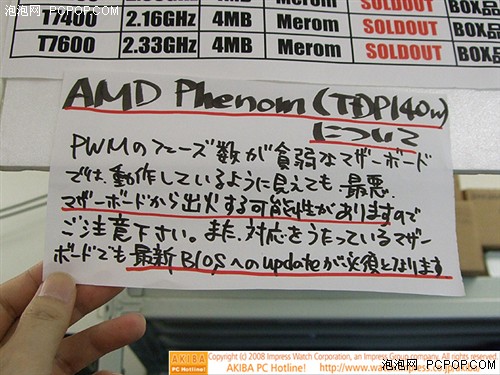 T7400 2.16GHz 4MB Merom SOLDOUT BOX品
T7600 2.33GHz 4MB Merom SOLDOUT BOX品
AMD Phenom (TDP140w)
について
PWMのフェーズ数が貧弱なマザーボード
では、動作しているように見えても、最悪、
マザーボードから出火する可能性がありますので
ご注意下さい。また、対応をうたっているマザー
ボードでも最新BIOSへのupdateが必須となります
AKIBA
PC Hotline!
Copyright (c) 2008 Impress Watch Corporation, an Impress Group company. All rights reserved.
AKIBA PC Hotline! http://www.watch.impress.co.jp/akiba/
泡泡网 pcpop.com
泡泡网 pcpop.com